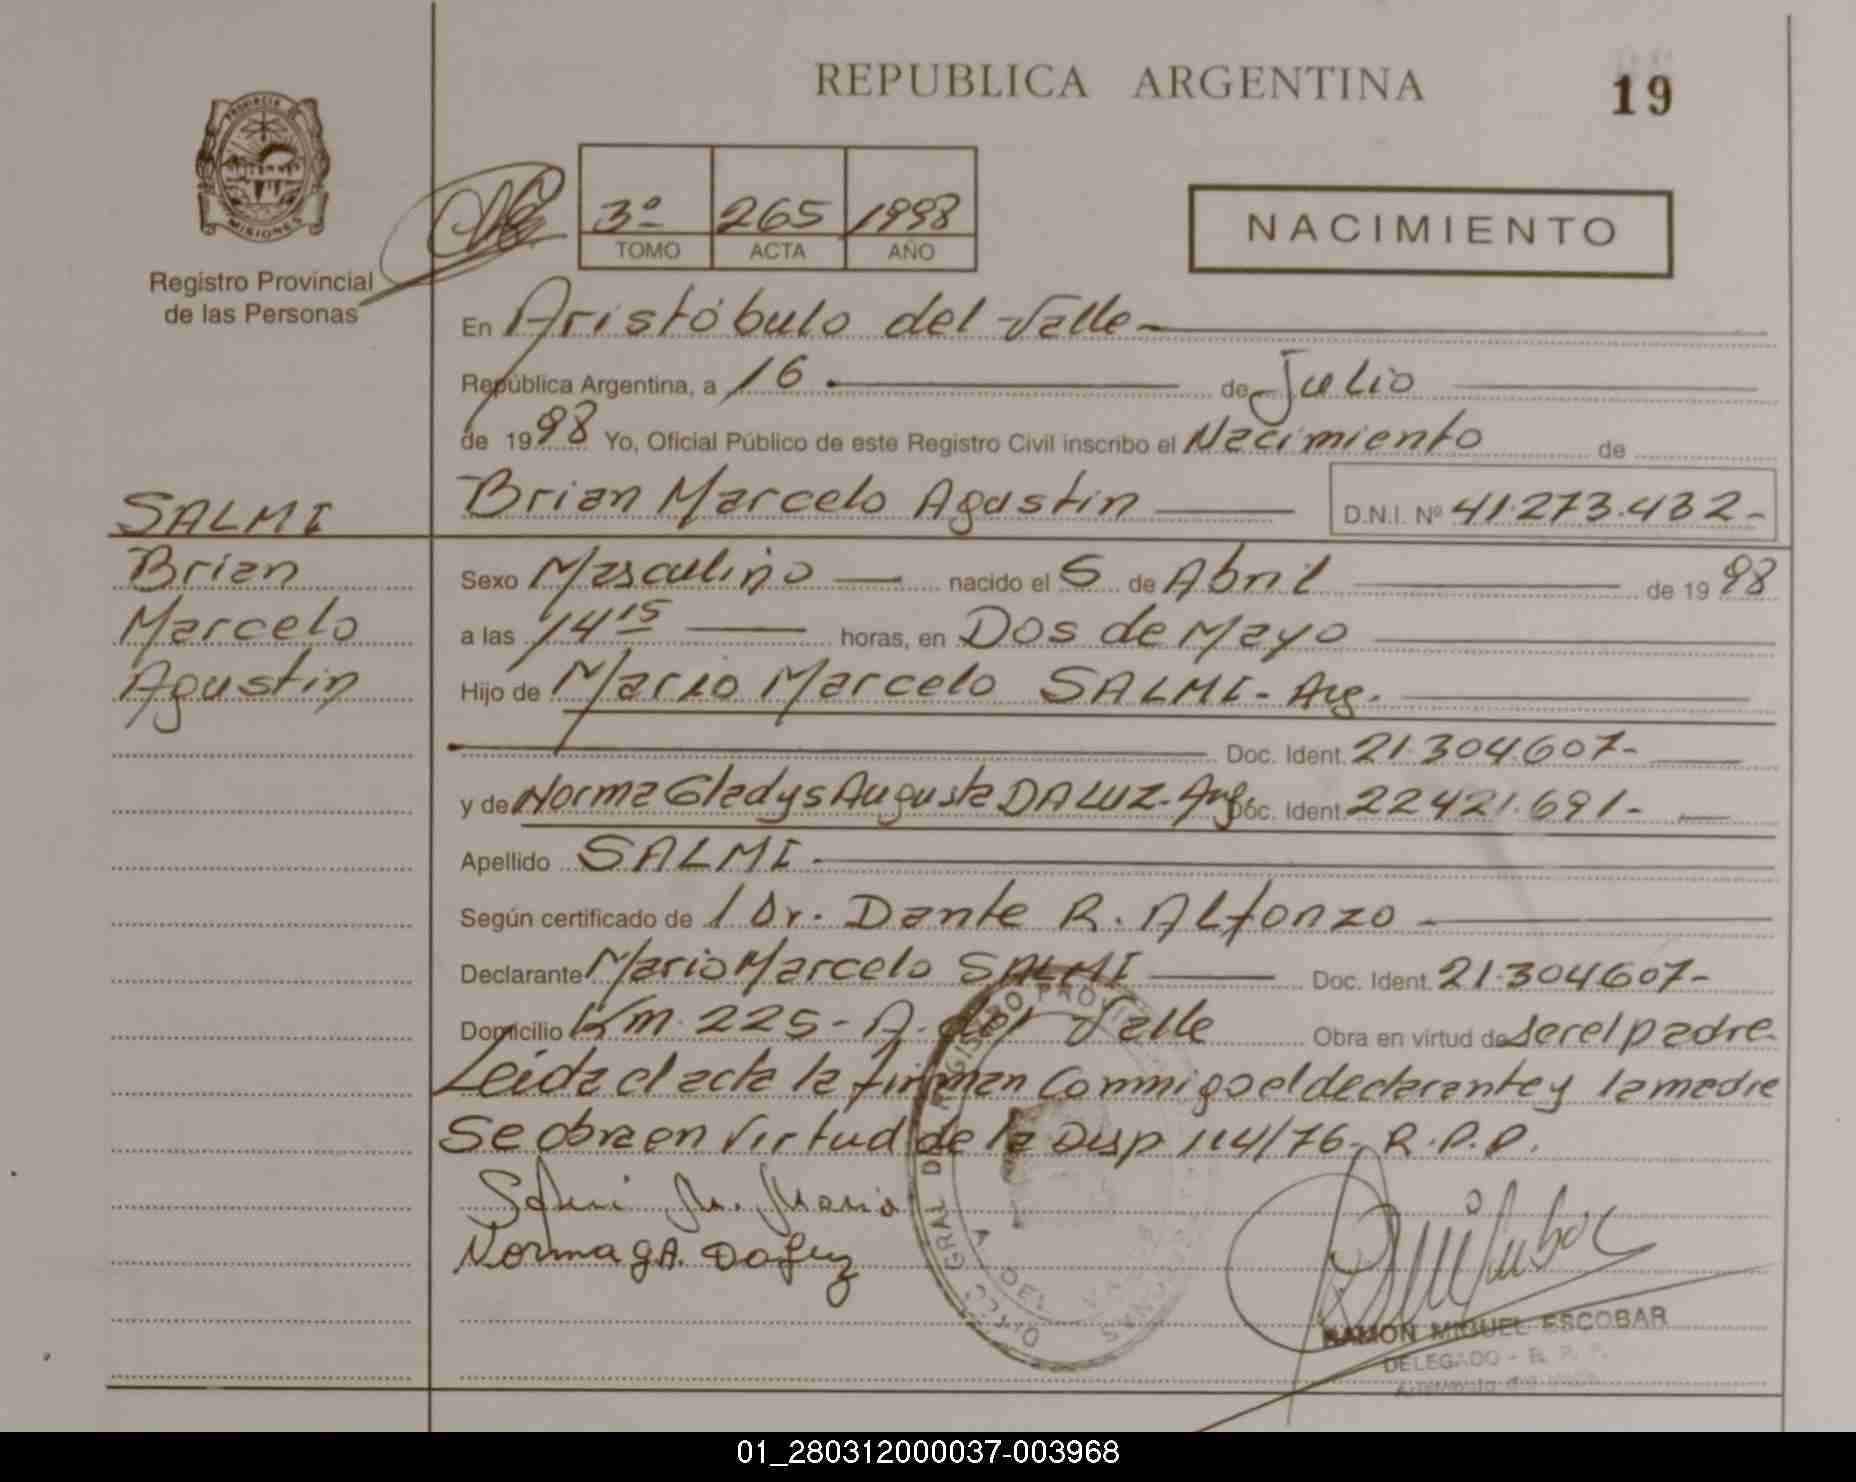 REPUBLICA ARGENTINA
19
PROVINCIA DE
MISIONES
Registro Provincial
de las Personas
3º 265 1998
TOMO ACTA AÑO
NACIMIENTO
En Aristóbulo del Valle
República Argentina, a 16 de Julio
de 1998 Yo, Oficial Público de este Registro Civil inscribo el Nacimiento de
Brian Marcelo Agustin D.N.I. Nº 41.273.432-
SALMI
Brian
Marcelo
Agustin
Sexo Masculino nacido el 5 de Abril de 1998
a las 14 15 horas, en Dos de Mayo
Hijo de Mario Marcelo SALMI - Arg.
Doc. Ident. 21.304.607-
y de Norma Gladys Augusta DA LUZ - Arg. Doc. Ident. 22.421.691-
Apellido SALMI
Según certificado de 1 Dr. Dante R. Alfonzo
Declarante Mario Marcelo SALMI Doc. Ident. 21.304.607-
Domicilio Km. 225 - A. del Valle Obra en virtud de ser el padre
Leida el acta la firman conmigo el declarante y la madre
Se obra en virtud de la Disp 114/76- R.P.P.
Norma G.A. Da Luz
RAMON MIGUEL ESCOBAR
DELEGADO - R. P. P.
01_280312000037-003968